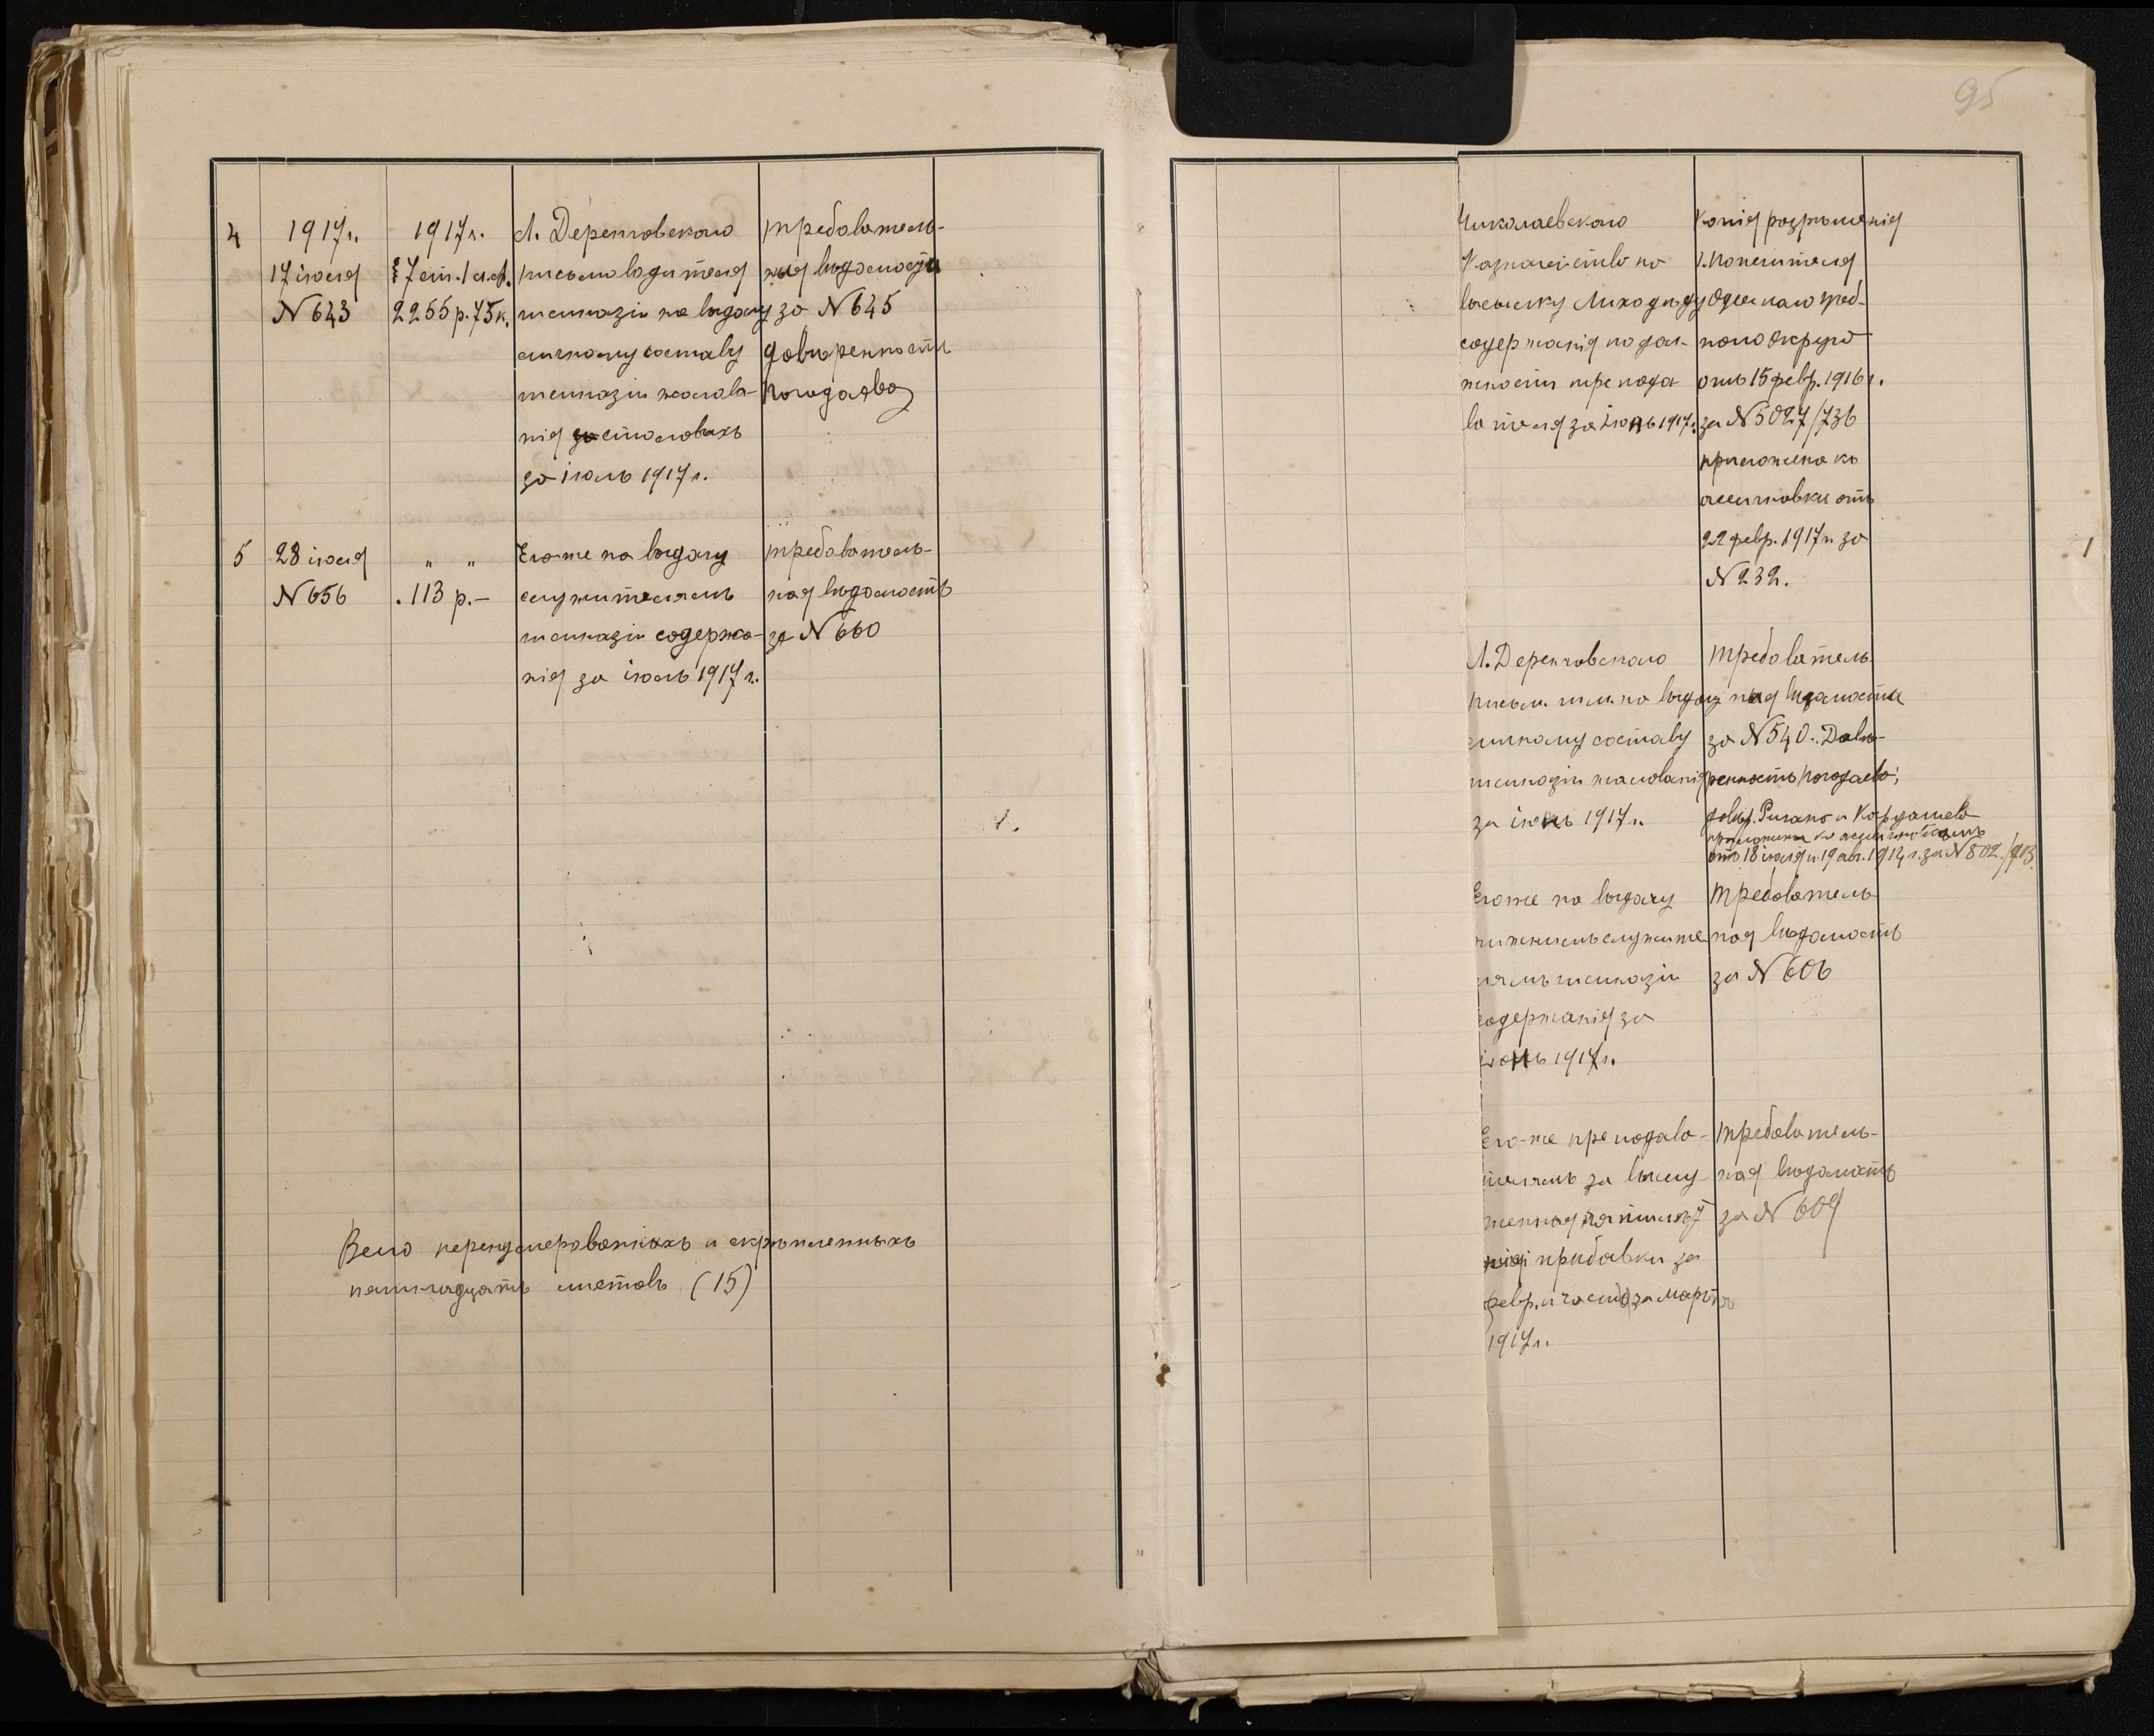 95
4
1917г.
17 іюля
N 643
1917г.
§ 7 ст. 1 а.
2255 р. 75 к.
Л. Деренговскаго
письмоводителя
гимназіи на выдачу
личному составу
гимназіи жалова-
нія столовыхъ
за іюль 1917 г.
требователь-
ныя вѣдомости
за N 645
довѣренности
Погодаева
5
28 іюля
N 656
" "
113 р. –
Его-же на выдачу
служителямъ
гимназіи содержа-
нія за іюль 1917 г.
требователь-
ная вѣдомость
за N 660
Всего перенумерованныхъ и скрѣпленныхъ
пятнадцать листовъ (15)
Николаевскаго
Казначейства на
высылку Лиходѣду
содержанія по дол-
жности препода-
вателя за іюнь 1917г.
Копія разрѣшенія
г. Попечителя
Одесскаго учеб-
наго Округа
отъ 15 февр. 1916 г.
за N 5027/736
приложена къ
ассигновки отъ
22 февр. 1917 г. за
N 232.
Л. Деренговскаго
письм. гим. на выдачу
личному составу
гимназіи жалованія
за іюнь 1917 г.
требователь
ныя вѣдомости
за N 540. Довѣ-
ренность Погодаева;
довѣр. и
приложены къ ассигновкамъ
отъ 18 іюля и 19 авг. 191 г. за N 802
Его же на выдачу
нижнимъ служите
лямъ гимназіи
содержанія за
іюнь 1917 г.
требователь
ная вѣдомость
за N 606
Его-же преподава-
телямъ за выслу
женныя пятилѣт
нія прибавки за
февр. и часть за Мартъ
1917 г.
требователь-
ная вѣдомость
за N 609
1